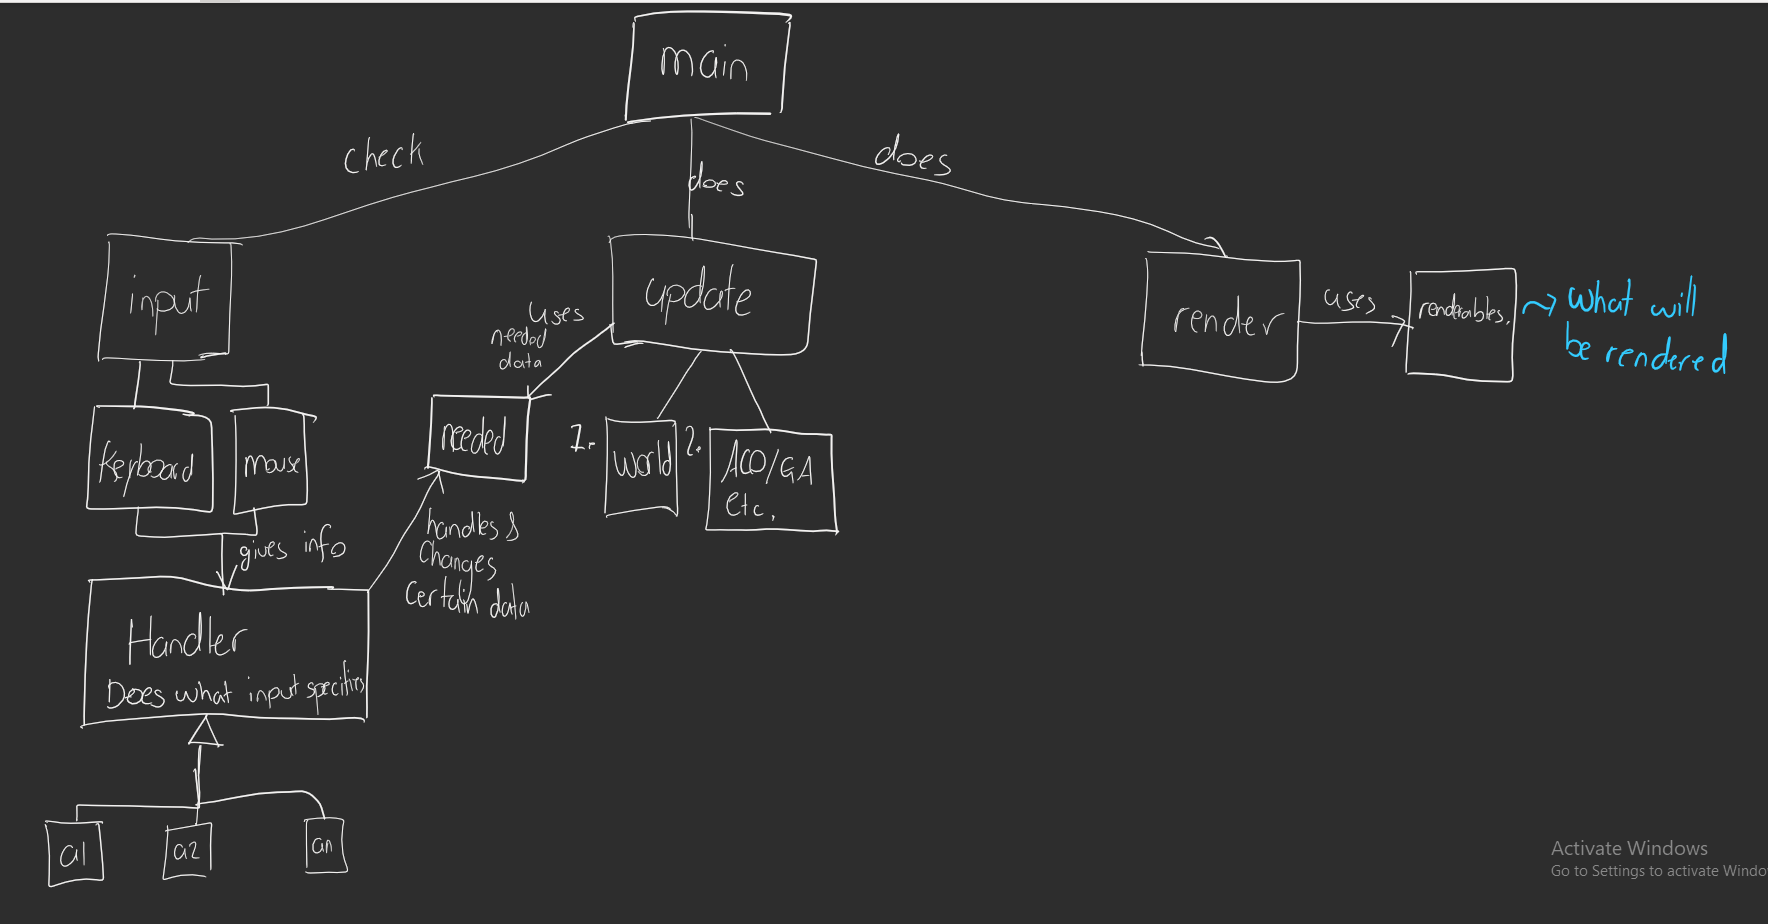 main
check
does
does
input
update
render
uses
renderables.
what will
be rendered
uses
needed
data
needed
Keyboard
mouse
1.
World
2.
ACO/GA
etc.
gives info
handles &
Changes
Certain data
Handler
Does what input specifies
a1
a2
an
Activate Windows
Go to Settings to activate Windo